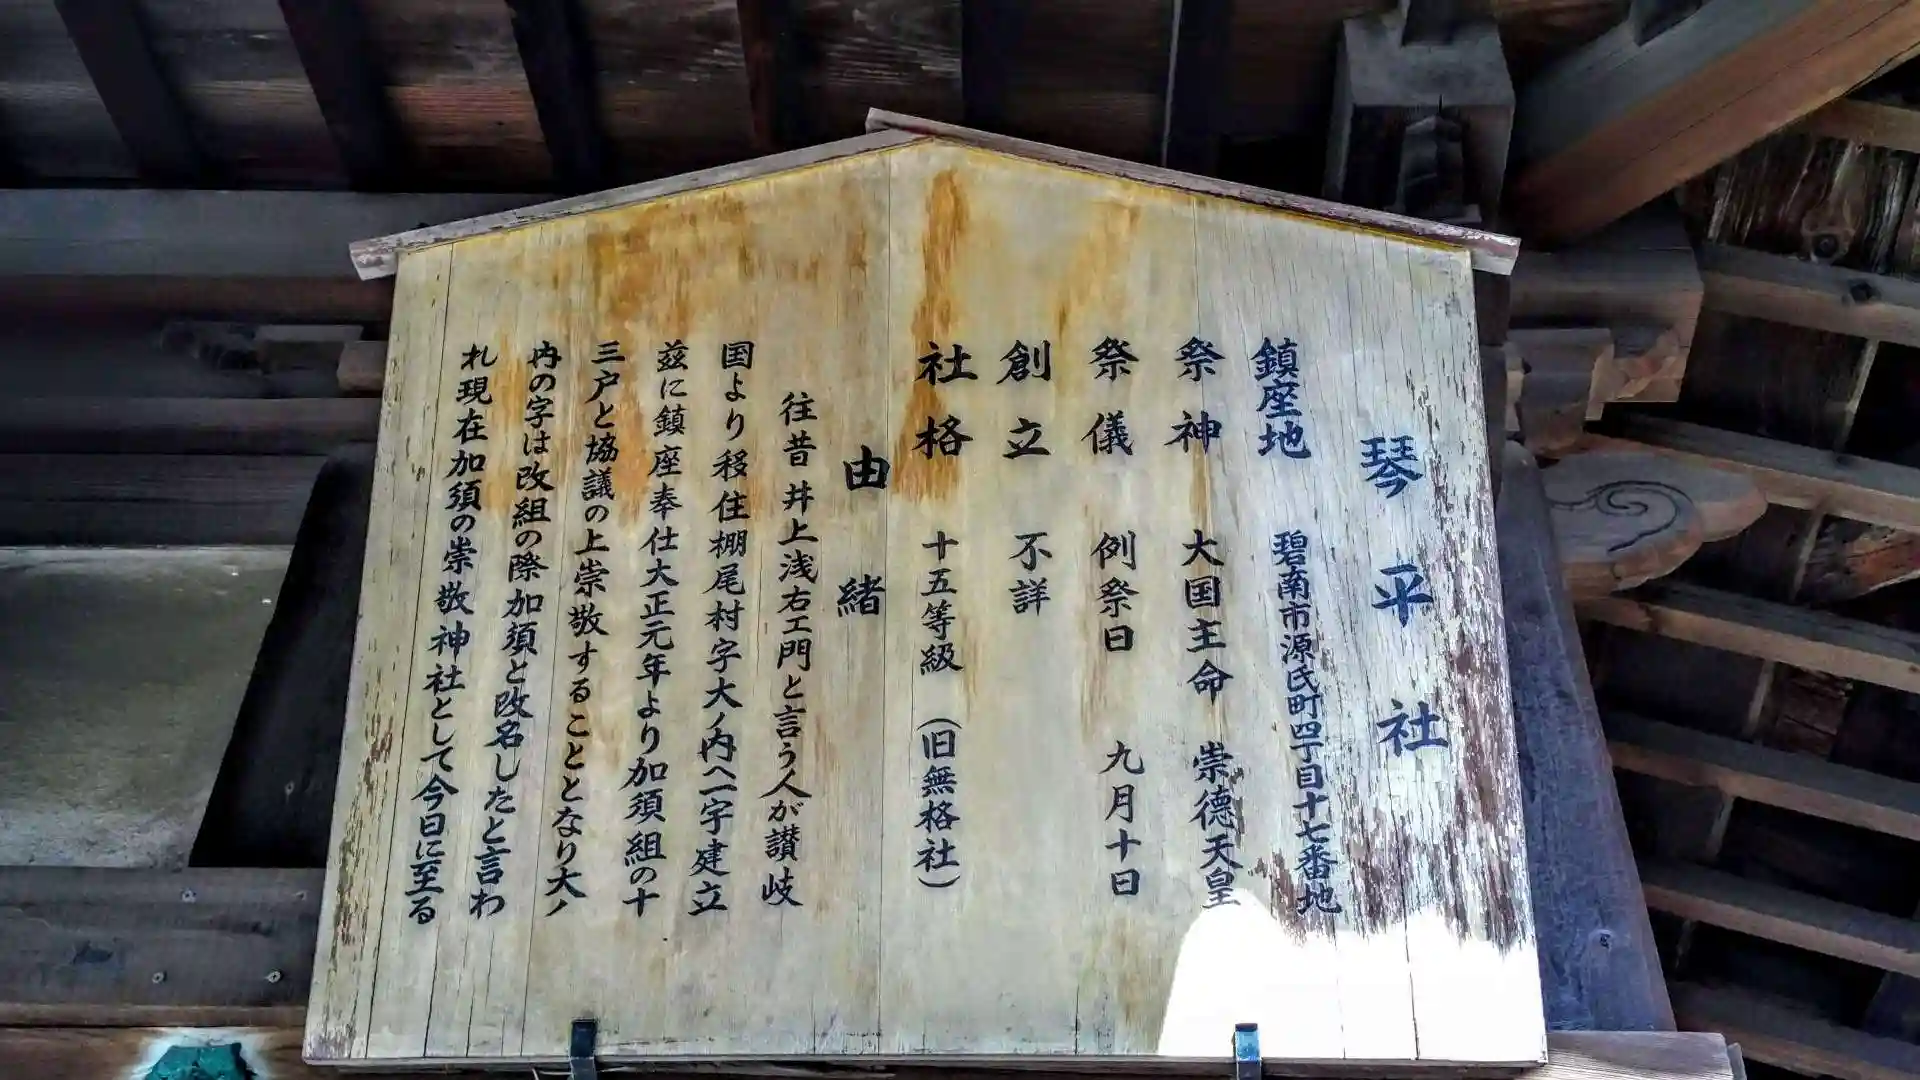 琴平社
鎮座地 碧南市源氏町四丁目十七番地
祭神 大国主命 崇徳天皇
祭儀 例祭日 九月十日
創立 不詳
社格 十五等級 (旧無格社)
由緒
往昔井上浅右エ門と言う人が讃岐
国より移住棚尾村字大ノ内へ一宇建立
茲に鎮座奉仕大正元年より加須組の十
三戸と協議の上崇敬することとなり大ノ
内の字は改組の際加須と改名したと言わ
れ現在加須の崇敬神社として今日に至る